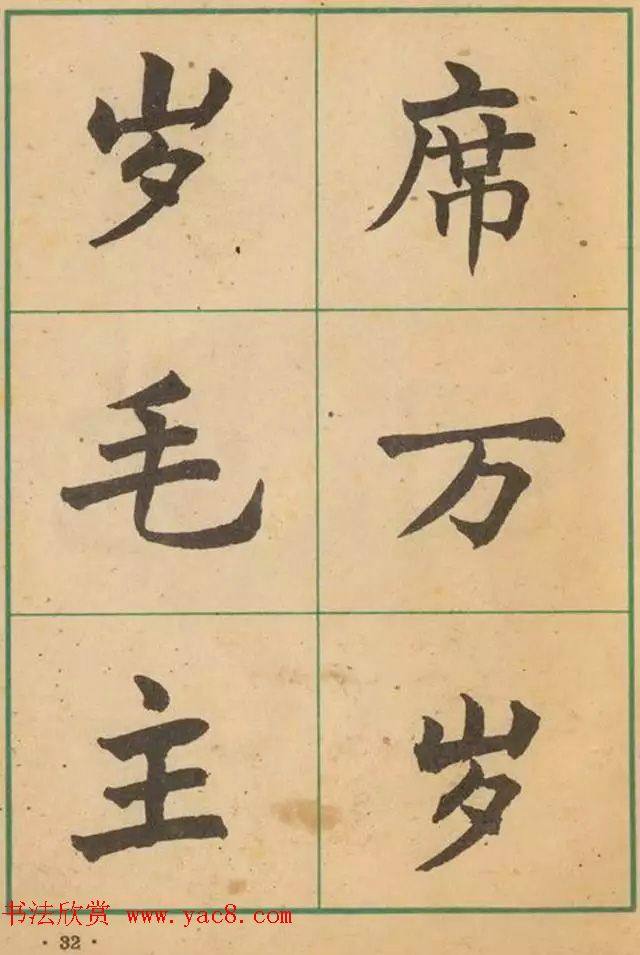 席万岁
岁毛主
书法欣赏 www.yac8.com
·32·